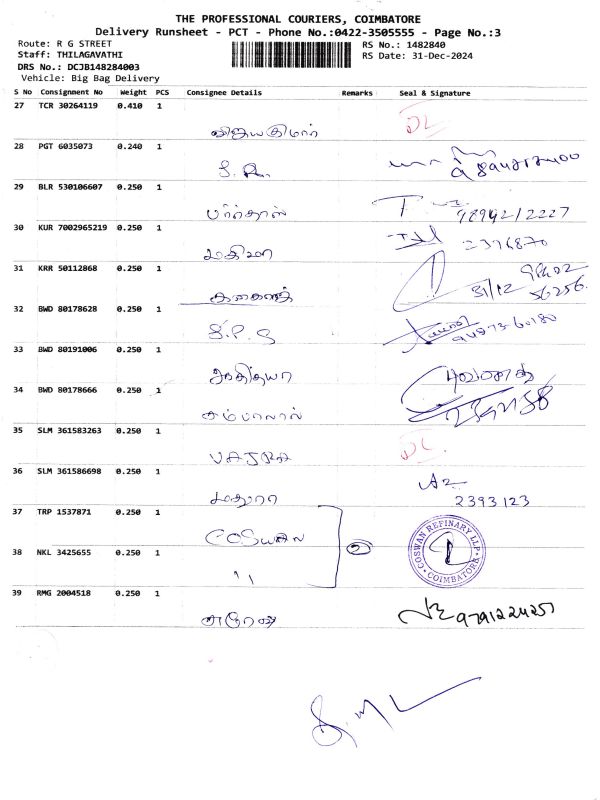 THE PROFESSIONAL COURIERS, COIMBATORE
Delivery Runsheet - PCT - Phone No.:0422-3505555 - Page No.:3
Route: R G STREET
RS No.: 1482840
Staff: THILAGAVATHI
RS Date: 31-Dec-2024
DRS No.: DCJB148284003
Vehicle: Big Bag Delivery
S No Consignment No Weight PCS Consignee Details Remarks Seal & Signature
27 TCR 30264119 0.410 1
விஜயகுமார் DL
28 PGT 6035073 0.240 1
29 BLR 530106607 0.250 1
98942/2227
30 KUR 7002965219 0.250 1
மகிமா 2376870
31 KRR 50112868 0.250 1
31/12 56256
32 BWD 80178628 0.250 1
S.P.S
33 BWD 80191006 0.250 1
34 BWD 80178666 0.250 1
சம்பாலால்
35 SLM 361583263 0.250 1
VAJRA DL
36 SLM 361586698 0.250 1
மதுரா 2393123
37 TRP 1537871 0.250 1
COSWAN 2
COSWAN REFINARY LLP COIMBATORE
38 NKL 3425655 0.250 1
"
39 RMG 2004518 0.250 1
அருண் 9791224251